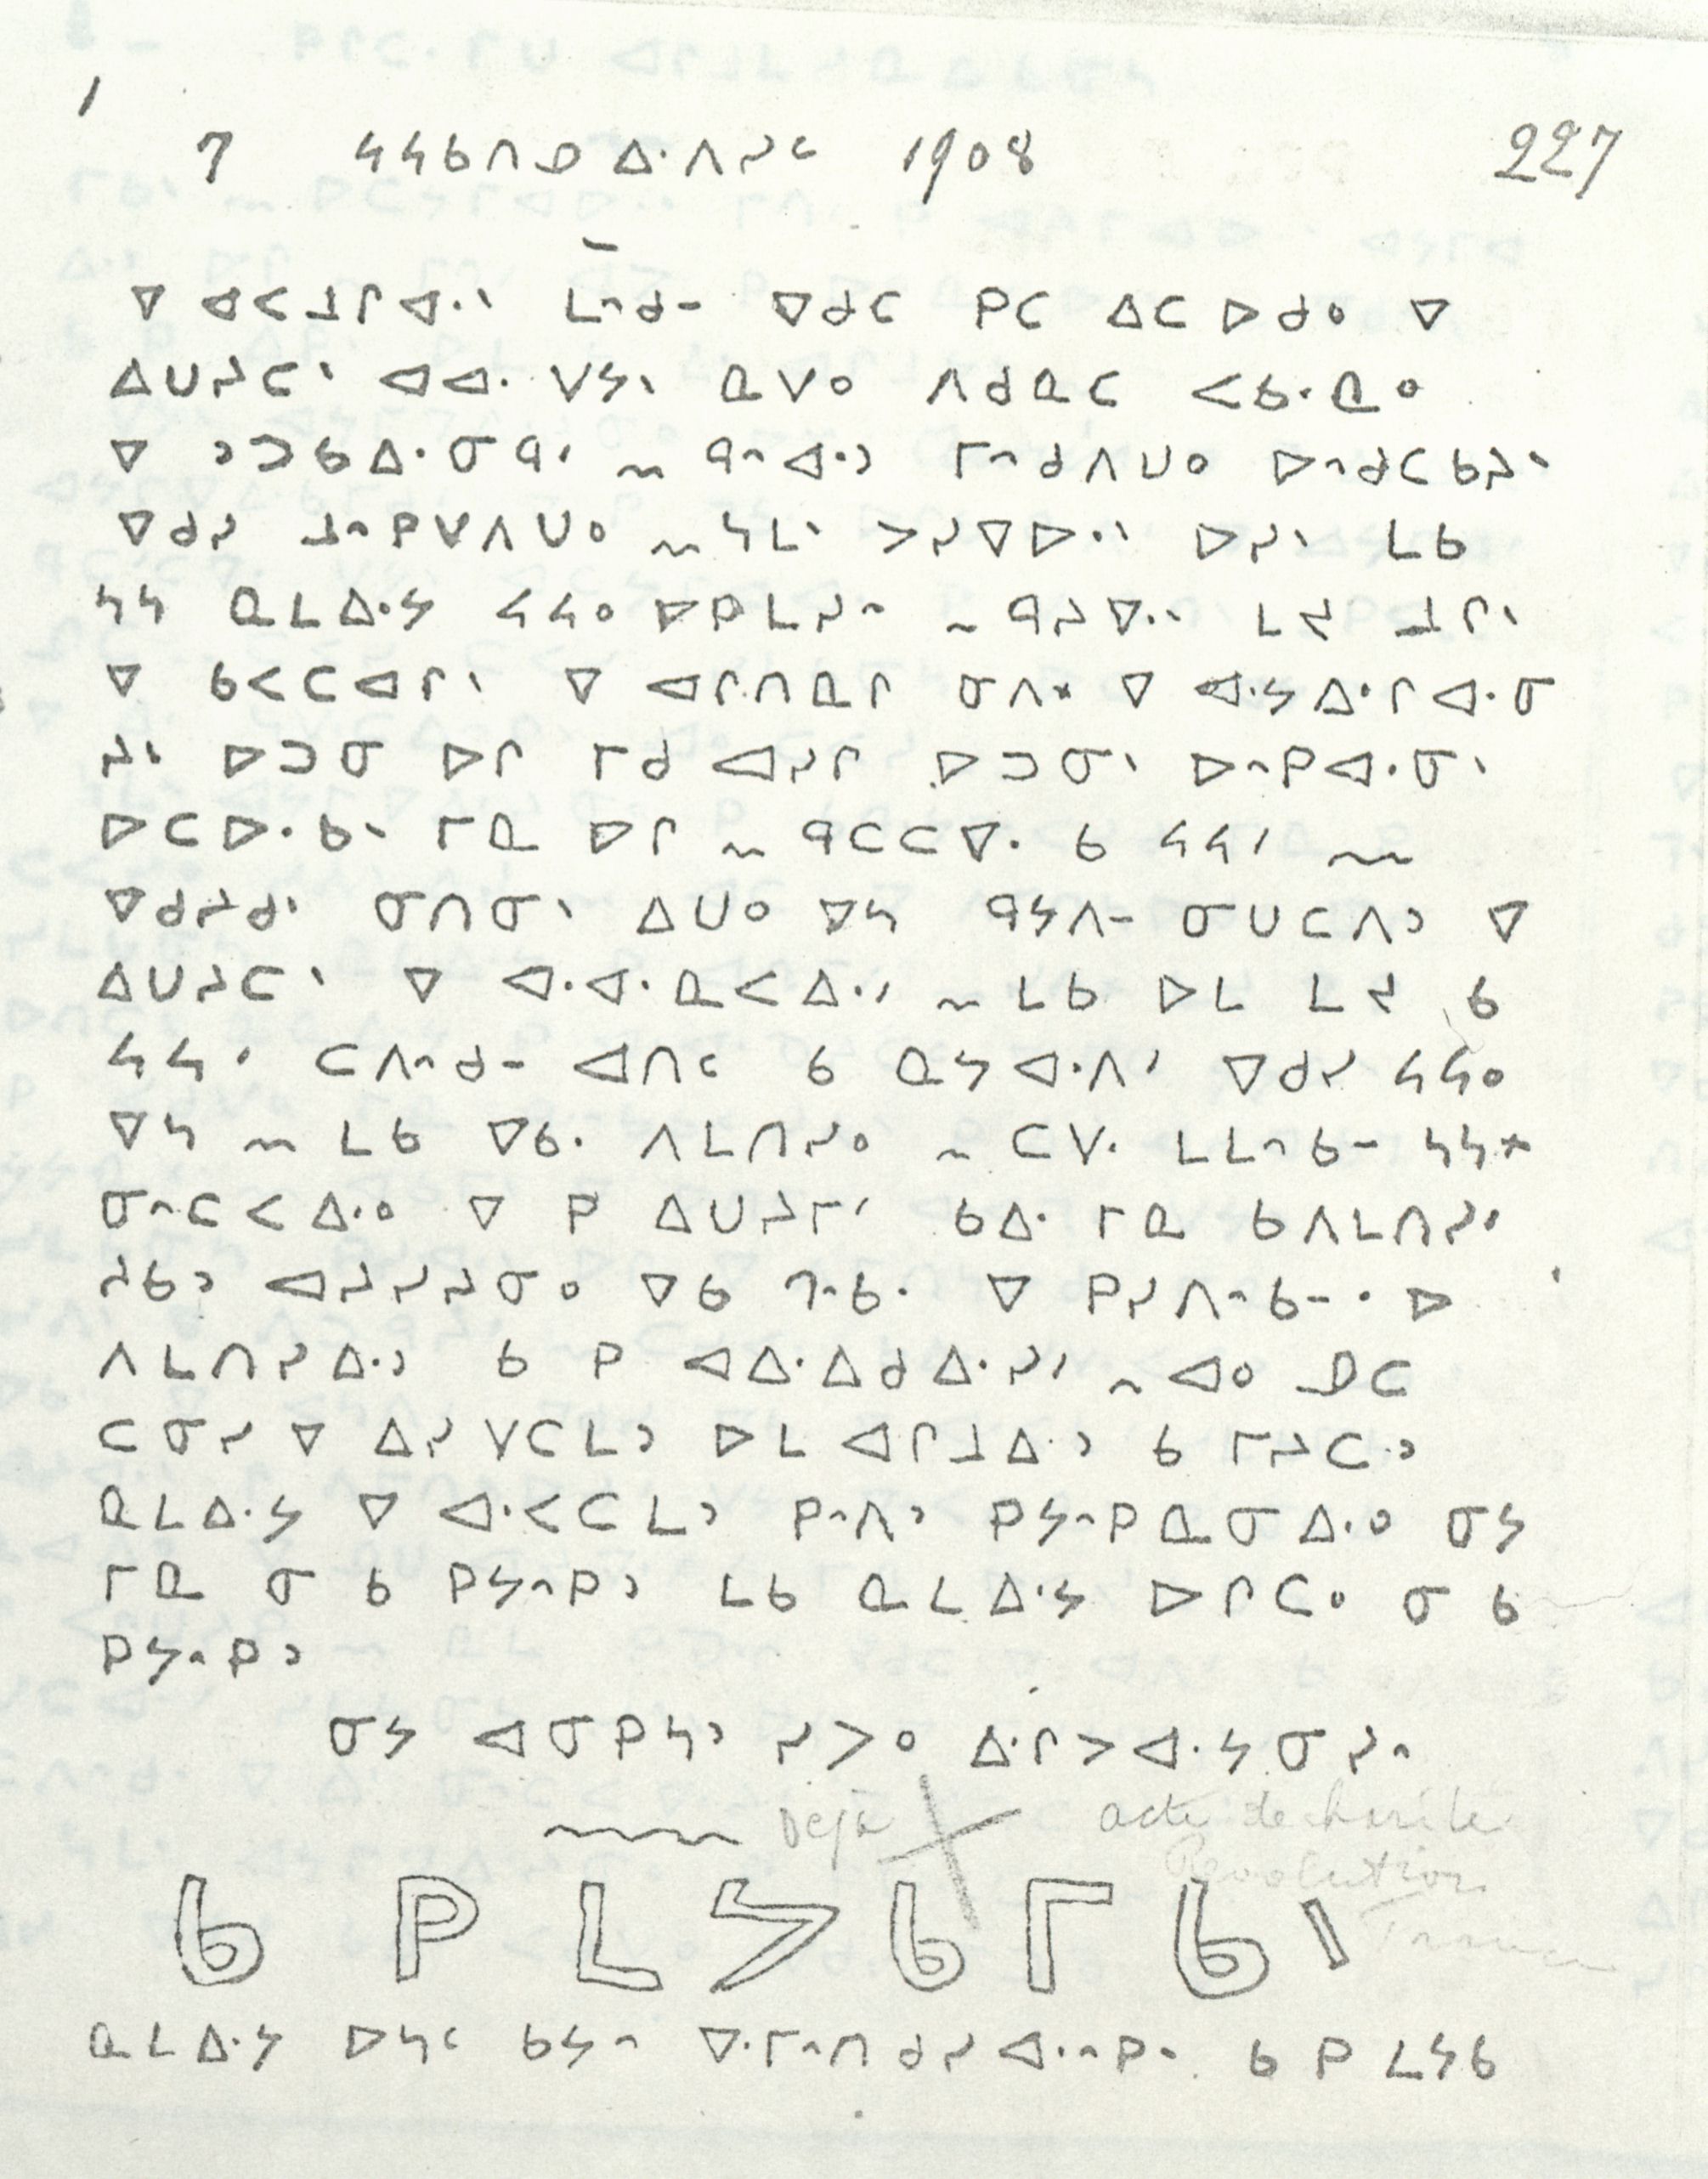 1
7 ᓴᓴᑲᑎᓄ ᐃᐧᐱᓯᑦ 1908 227
ᐁ ᐊᐸᒧᒋᐊᐧᐠ ᒪᐢᑯᐨ ᐁᑯᑕ ᑭᑕ ᐃᑕ ᐅᑯᐤ ᐁ
ᐃᑌᔨᑕᐠ ᐊᐊᐧ ᐯᔭᐠ ᓇᐯᐤ ᐱᑯᓇᑕ ᐸᑲᐧᓇᐤ
ᐁ ᐣᑐᑲᐃᐧᓂᑫᐟ ~ ᑫᐢᐊᐧᐣ ᒥᐢᑯᐱᑌᐤ ᐅᐢᑯᑕᑲᔨᐠ
ᐁᑯᓯ ᓄᐢᑭᐯᐱᑌᐤ ~ ᓴᒪᐠ ᐳᓯᐁᐅᐧᐠ ᐅᓯᐠ ᒪᑲ
ᓴᓴ ᓇᒪᐃᐧᔭ ᓴᓴᐤ ᐅᑭᒪᓯᐢ ~ ᑫᔨᐁᐧᐠ ᒪᔪ ᓄᒋᐠ
ᐁ ᑲᐸᑕᐊᒋᐠ ᐁ ᐊᒋᑎᓇᒋ ᓂᐱᕽ ᐁ ᐊᐧᔭᐃᐧᒋᐊᐧᓂ
ᔨᐠ ᐅᑐᓂ ᐅᒋ ᒥᑯ ᐊᓯᒋ ᐅᑐᓂᐠ ᐅᐢᑭᐊᐧᓂᐠ
ᐅᑕᐅᐧᑲᐠ ᒥᓇ ᐅᒋ ~ ᑫᑕᑕᐁᐧ ᑲ ᓴᓴᐟ ~
ᐁᑯᔨᑯᐠ ᓂᑎᓂᐠ ᐃᑌᐤ ᐁᓴ ᑫᔭᐱᐨ ᓂᑌᑕᐱᐣ ᐁ
ᐃᑌᔨᑕᐠ ᐁ ᐊᐧᐊᐧᓇᐸᐃᐧᐟ ~ ᒪᑲ ᐅᒪ ᒪᔪ ᑲ
ᓴᓴᐟ ᑕᐱᐢᑯᐨ ᐊᑎᑦ ᑲ ᓇᔭᐊᐧᐱᐟ ᐁᑯᓯ ᓴᓴᐤ
ᐁᓴ ~ ᒪᑲ ᐁᑲᐧ ᐱᒪᑎᓯᐤ ~ ᑕᐯᐧ ᒪᒪᐢᑲᐨ ᓴᓴᕽ
ᓂᐢᑕᐸᐃᐧᐤ ᐁ ᑭ ᐃᑌᔨᒥᐟ ᑲᐃᐧ ᒥᓇ ᑲᐱᒪᑎᓯᐟ
ᔨᑲᐣ ᐊᔨᓯᔨᓂᐤ ᐁᑲ ᒉᐢᑲᐧ ᐁ ᑭᓯᐱᐢᑲᐠ ᐅ
ᐱᒪᑎᓯᐃᐧᐣ ᑲ ᑭ ᐊᐃᐧᐃᑯᐃᐧᓯᐟ ~ ᐊᐤ ᓄᑕ
ᑕᓂᓯ ᐁ ᐃᓯ ᐯᑕᒪᐣ ᐅᒪ ᐊᒋᒧᐃᐧᐣ ᑲ ᒥᔨᑕᐣ
ᓇᒪᐃᐧᔭ ᐁ ᐊᐧᐸᑕᒪᐣ ᑭᐢᐱᐣ ᑭᔭᐢᑭᓇᓂᐃᐧᐤ ᓂᔭ
ᒥᓇ ᓂ ᑲ ᑭᔭᐢᑭᐣ ᒪᑲ ᓇᒪᐃᐧᔭ ᐅᒋᑕᐤ ᓂ ᑲ
ᑭᔭᐢᑭᐣ
ᓂᔭ ᐊᓂᑭᓴᐣ ᓯᐳᐤ ᐃᐧᒋᐳᐊᐧᔭᓂᓯᐢ
Déjà acte de charité
Revolution
ᑲ ᑭ ᒪᔭᑲᒥᑲᐠ
ᓇᒪᐃᐧᔭ ᐅᓴᑦ ᑲᔭᐢ ᐁᐧᒥᐢᑎᑯᓯᐊᐧᐢᑭᐠ ᑲ ᑭ ᒪᔭᑲ